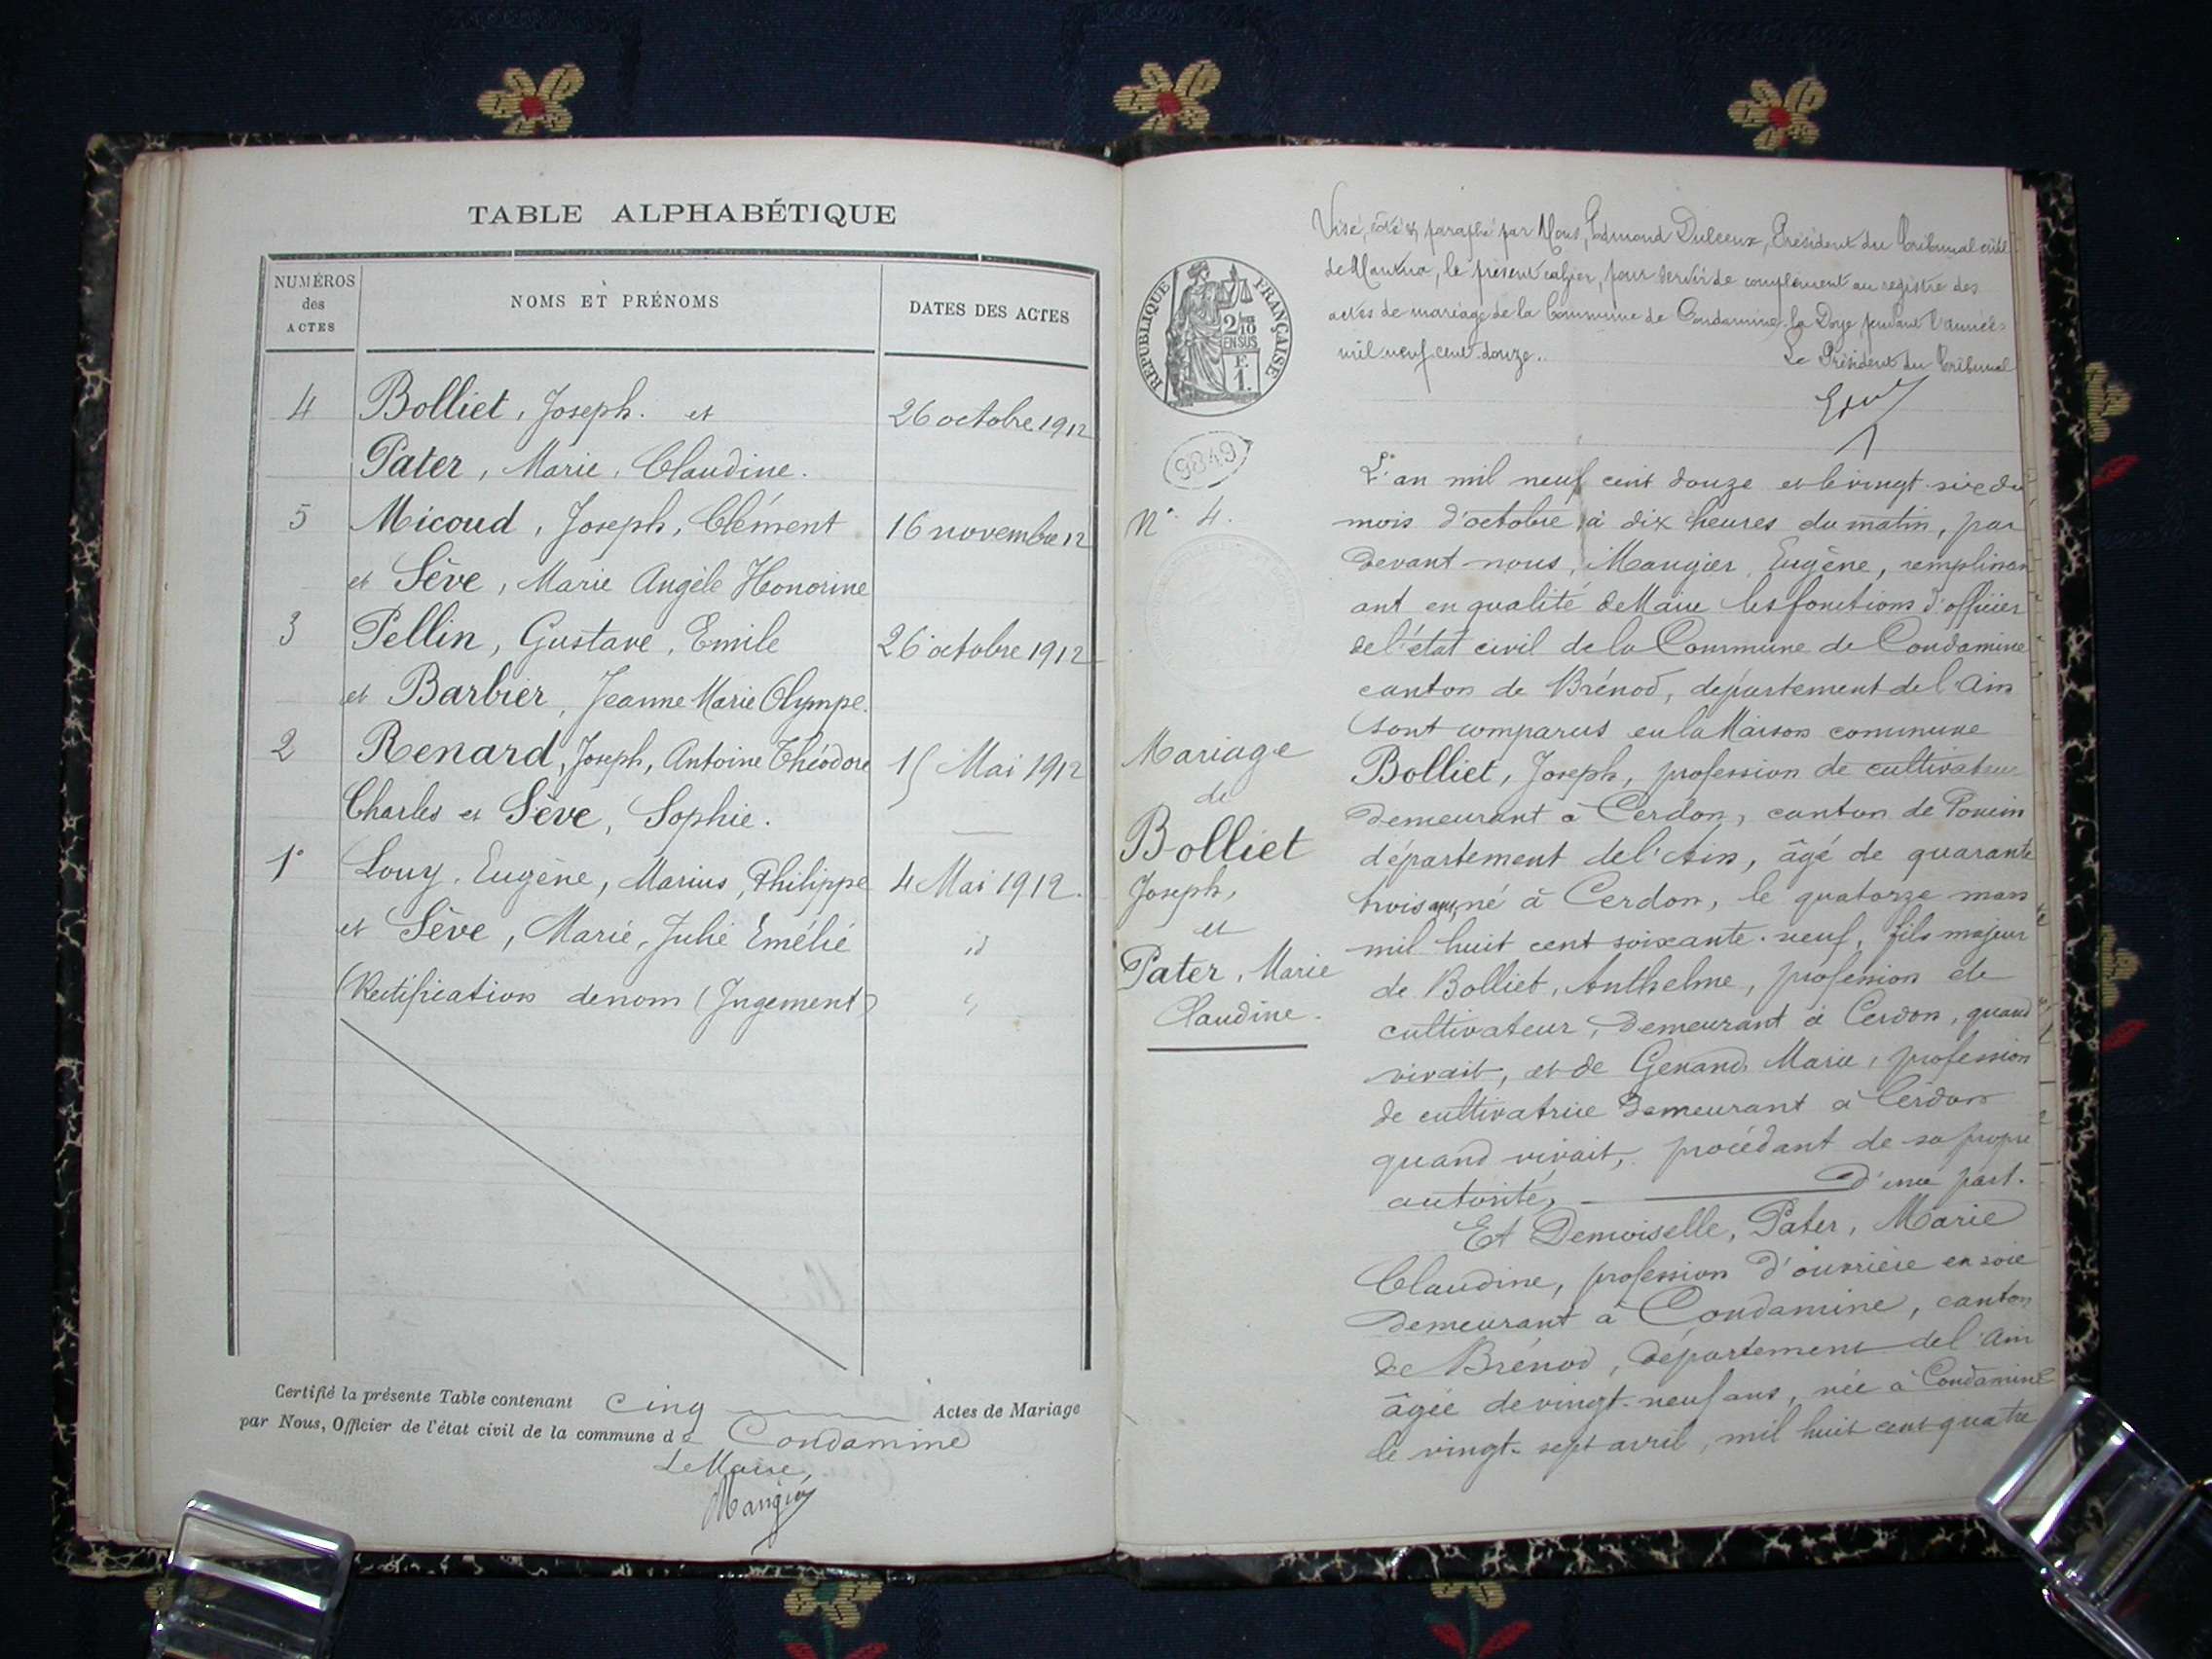 TABLE ALPHABÉTIQUE
NUMÉROS des ACTES
NOMS ET PRÉNOMS
DATES DES ACTES
4 Bolliet, Joseph. et 26 octobre 1912
Pater, Marie, Claudine.
5 Micoud, Joseph, Clément 16 novembre 12
et Sève, Marie Angèle Honorine
3 Pellin, Gustave, Emile 26 octobre 1912
et Barbier, Jeanne Marie Olympe.
2 Renard, Joseph, Antoine Théodore 15 Mai 1912
Charles et Sève, Sophie.
1° Louy, Eugène, Marius, Philippe 4 Mai 1912.
et Sève, Marie, Julie Emélie id
(Rectification de nom (Jugement)
Certifié la présente Table contenant cinq Actes de Mariage
par Nous, Officier de l'état civil de la commune de Condamine
Le Maire,
Mangier
Visé, coté & paraphé par Nous, Edmond Duleeux, Président du Tribunal civil
de Nantua, le présent cahier, pour servir de complément au registre des
actes de mariage de la Commune de Condamine-la Doye, pendant l'année
mil neuf cent douze.
Le Président du Tribunal
RÉPUBLIQUE FRANÇAISE
2/10 EN SUS
F. 1.
9849
N° 4.
Mariage
de
Bolliet
Joseph,
et
Pater, Marie
Claudine.
L'an mil neuf cent douze et le vingt-six du
mois d'octobre, à dix heures du matin, par
devant nous, Maugier, Eugène, remplissan
ant en qualité de Maire les fonctions d'officier
de l'état civil de la Commune de Condamine
canton de Brénod, département de l'Ain
sont comparus en la Maison commune
Bolliet, Joseph, profession de cultivateur
demeurant à Cerdon, canton de Poncin
département de l'Ain, âgé de quarante
trois ans, né à Cerdon, le quatorze mars
mil huit cent soixante-neuf, fils majeur
de Bolliet, Anthelme, profession de
cultivateur, demeurant à Cerdon, quand
vivait, et de Genand, Marie, profession
de cultivatrice demeurant à Cerdon
quand vivait, procédant de sa propre
autorité, d'une part.
Et Demoiselle, Pater, Marie
Claudine, profession d'ouvrière en soie
demeurant à Condamine, canton
de Brénod, département de l'Ain
âgée de vingt-neuf ans, née à Condamine
le vingt-sept avril, mil huit cent quatre